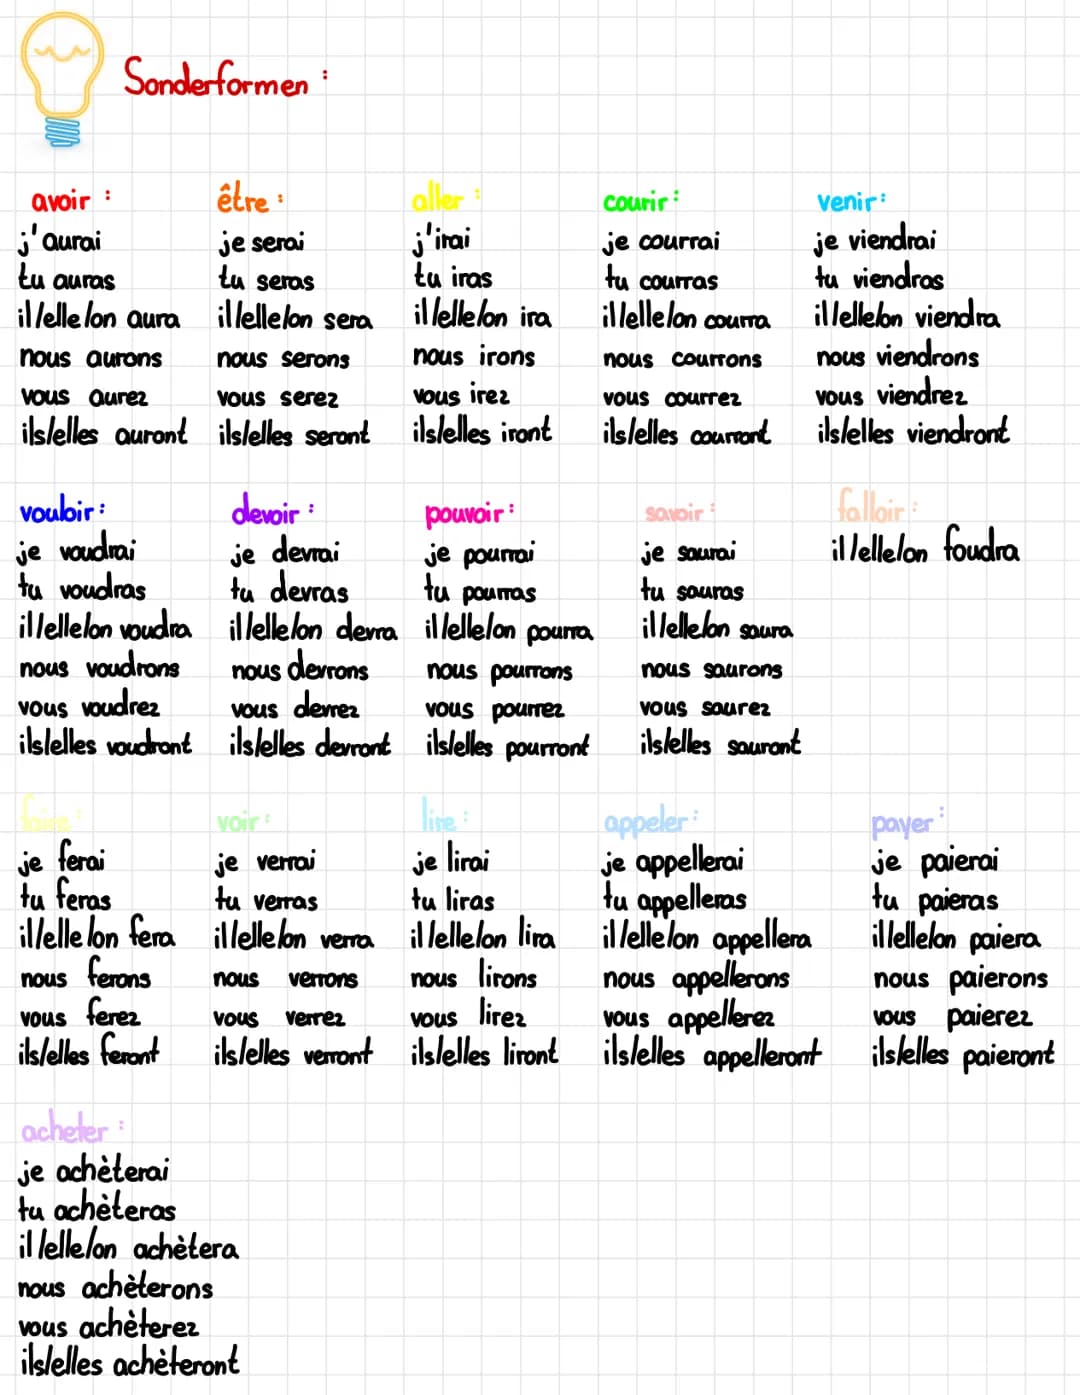 Sonderformen :
avoir :
j'aurai
tu auras
il/elle/on aura
nous aurons
vous aurez
ils/elles auront
être :
je serai
tu seras
il/elle/on sera
nous serons
vous serez
ils/elles seront
aller :
j'irai
tu iras
il/elle/on ira
nous irons
vous irez
ils/elles iront
courir :
je courrai
tu courras
il/elle/on courra
nous courrons
vous courrez
ils/elles courront
venir :
je viendrai
tu viendras
il/elle/on viendra
nous viendrons
vous viendrez
ils/elles viendront
vouloir :
je voudrai
tu voudras
il/elle/on voudra
nous voudrons
vous voudrez
ils/elles voudront
devoir :
je devrai
tu devras
il/elle/on devra
nous devrons
vous devrez
ils/elles devront
pouvoir :
je pourrai
tu pourras
il/elle/on pourra
nous pourrons
vous pourrez
ils/elles pourront
savoir :
je saurai
tu sauras
il/elle/on saura
nous saurons
vous saurez
ils/elles sauront
falloir :
il/elle/on foudra
faire :
je ferai
tu feras
il/elle/on fera
nous ferons
vous ferez
ils/elles feront
voir :
je verrai
tu verras
il/elle/on verra
nous verrons
vous verrez
ils/elles verront
lire :
je lirai
tu liras
il/elle/on lira
nous lirons
vous lirez
ils/elles liront
appeler :
je appellerai
tu appelleras
il/elle/on appellera
nous appellerons
vous appellerez
ils/elles appelleront
payer :
je paierai
tu paieras
il/elle/on paiera
nous paierons
vous paierez
ils/elles paieront
acheter :
je achèterai
tu achèteras
il/elle/on achètera
nous achèterons
vous achèterez
ils/elles achèteront